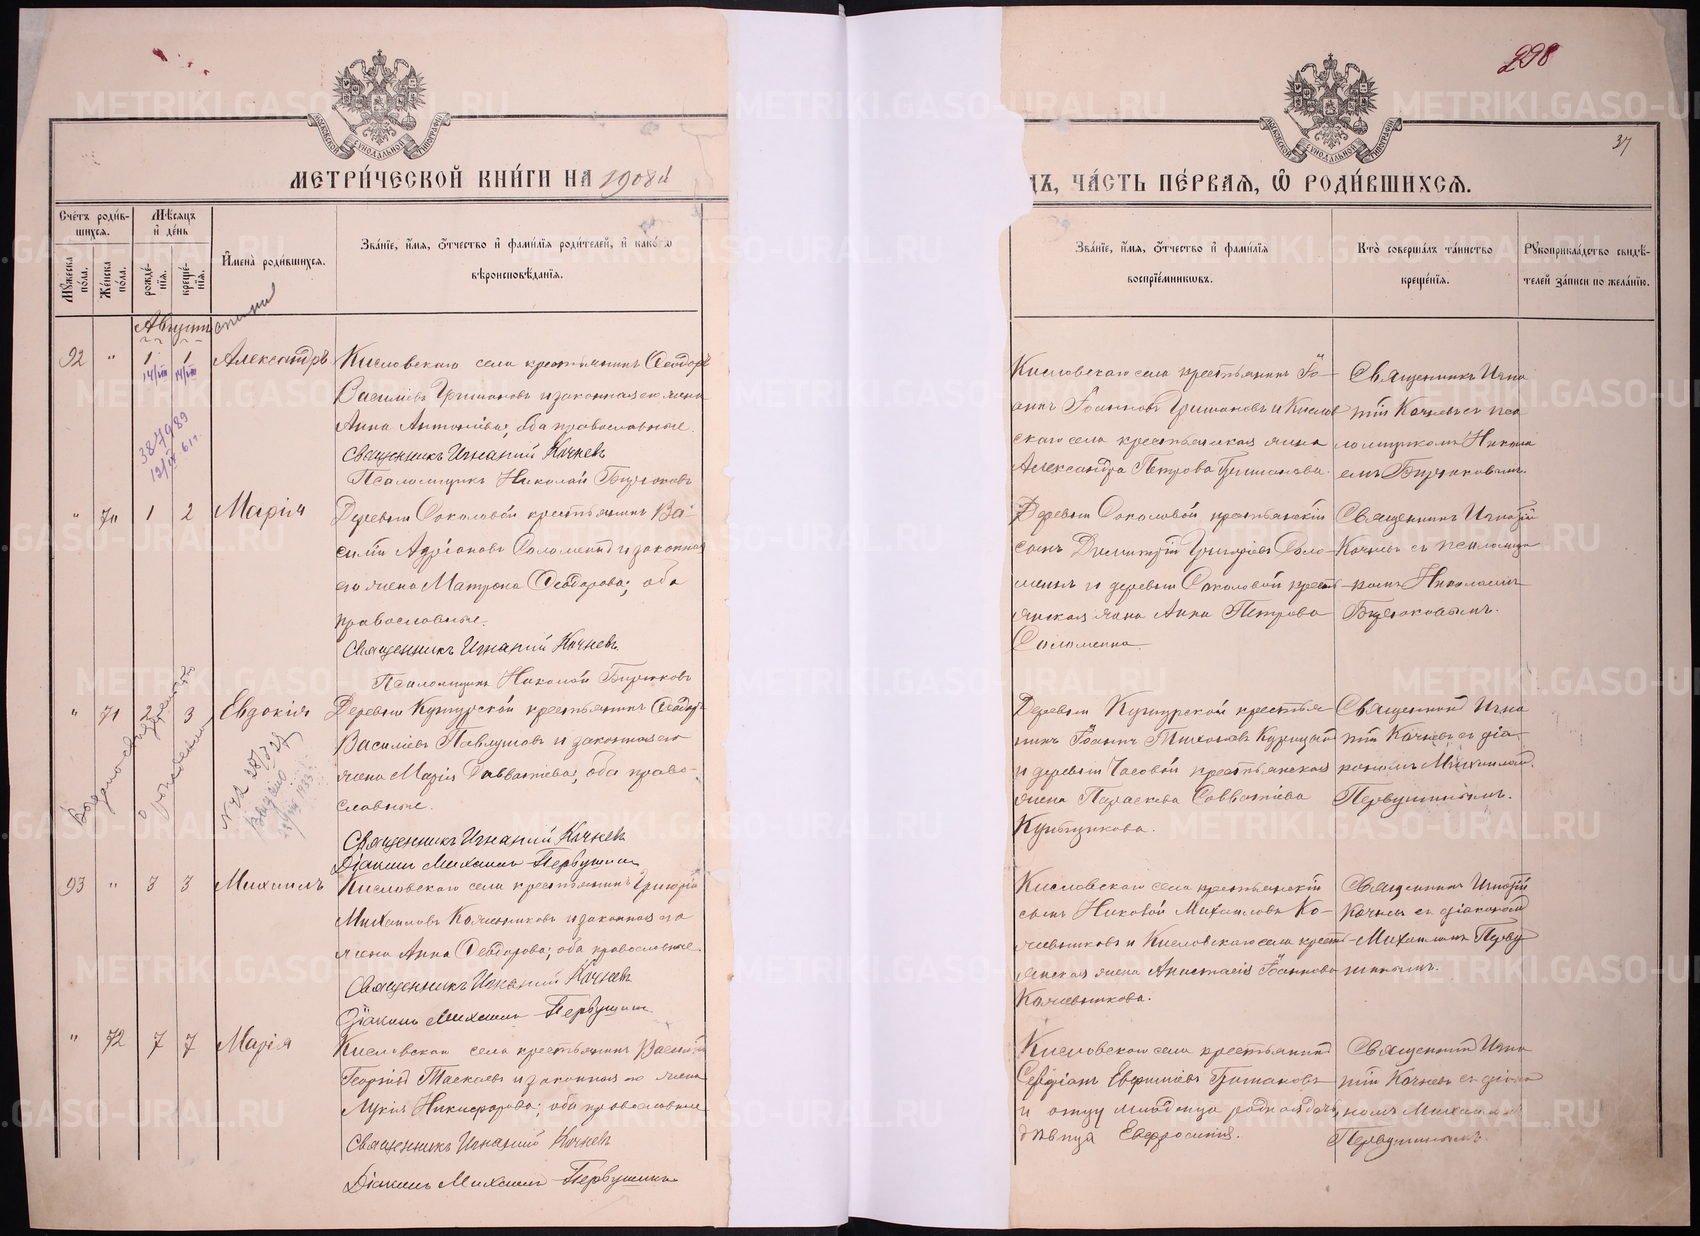 298
37
МОСКОВСКОЙ СѴНОДАЛЬНОЙ ТИПОГРАФІИ
МОСКОВСКОЙ СѴНОДАЛЬНОЙ ТИПОГРАФІИ
МЕТРИ́ЧЕСКОЙ КНИ́ГИ НА 1908й
ДЪ, ЧА́СТЬ ПЕ́РВАЯ, Ѽ РОДИ́ВШИХСЯ.
Сче́тъ роди́в-
шихся.
Мѣ́сяцъ
и де́нь
Му́жеска
по́ла.
Же́нска
по́ла.
рожде́-
нія.
креще́-
нія.
Имена̀ роди́вшихся.
Зва́ніе, и́мя, о́тчество и фами́лія роди́телей, и како́гѡ
вѣроисповѣ́данія.
Зва́ніе, и́мя, о́тчество и фами́лія
воспріе́мниковъ.
Кто̀ соверша́лъ та́инство
креще́нія.
Рукоприкла́дство свидѣ́-
телей за́писи по жела́нію.
Августъ
92 " 1 1 Александръ
14/VIII 14/VIII
Кисловскаго села крестьянинъ Ѳеодоръ
Василіевъ Гришановъ и законная его жена
Анна Антоніева; оба православные.
Священникъ Игнатій Кочневъ
Псаломщикъ Николай Бирюковъ
Кисловскаго села крестьянинъ Іо-
аннъ Іоанновъ Гришановъ и Кислов
скаго села крестьянская жена
Александра Петрова Гришанова.
Священникъ Игна
тій Кочневъ съ пса
ломщикомъ Никола
емъ Бирюковымъ.
" 70 1 2 Марія
Деревни Соколовой крестьянинъ Ва-
силій Адріановъ Соломеинъ и законная
его жена Матрона Ѳеодорова; оба
православные.
Священникъ Игнатій Кочневъ
Псаломщикъ Николай Бирюковъ
Деревни Соколовой крестьянскій
сынъ Димитрій Григоріевъ Соло-
меинъ и деревни Соколовой кресть-
янская жена Анна Петрова
Соломеина.
Священникъ Игнатій
Кочневъ съ псаломщи
комъ Николаемъ
Бирюковымъ.
" 71 2 3 Евдокія
Деревни Ѳеодоръ
Василіевъ Павлушовъ и законная его
жена Марія Савватіева; оба право-
славные.
Священникъ Игнатій Кочневъ
Діаконъ Михаилъ Первушинъ
Деревни крестья
нинъ Іоаннъ Тихоновъ
и деревни Часовой крестьянская
жена Параскева Савватіева
Священникъ Игна
тій Кочневъ съ діа-
кономъ Михаиломъ
Первушинымъ.
93 " 3 3 Михаилъ
Кисловскаго села крестьянинъ Григорій
Михаиловъ Кожевниковъ и законная его
жена Анна Ѳеодорова; оба православные.
Священникъ Игнатій Кочневъ
Діаконъ Михаилъ Первушинъ
Кисловскаго села крестьянскій
сынъ Михаиловъ Ко-
жевниковъ и Кисловскаго села кресть-
янская жена Анастасія Іоаннова
Кожевникова.
Священникъ Игнатій
Кочневъ съ діакономъ
Михаиломъ Перву
шинымъ.
" 72 7 7 Марія
Кисловскаго села крестьянинъ Василій
Георгіевъ Таскаевъ и законная его жена
Лукія Никифорова; оба православные
Священникъ Игнатій Кочневъ
Діаконъ Михаилъ Первушинъ
Кисловскаго села крестьянинъ
Евфиміевъ Гришановъ
и отцу младенца родная дочь,
дѣвица Евфросинія.
Священникъ Игна
тій Кочневъ съ діако
номъ Михаиломъ
Первушинымъ.
METRIKI.GASO-URAL.RU